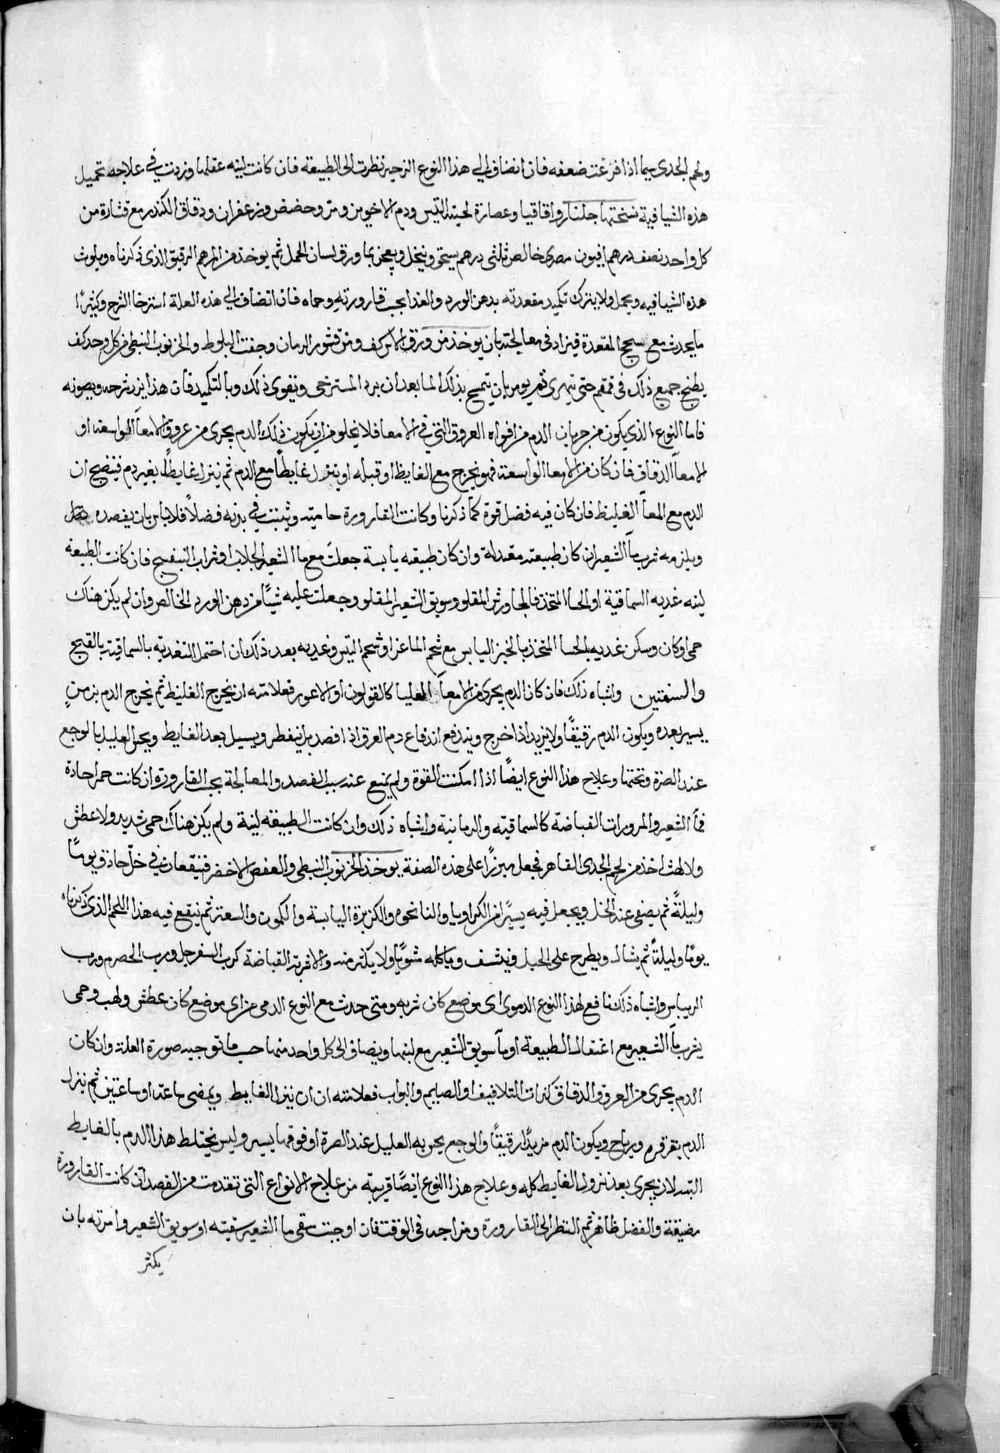 ولحم الجدي سيما اذا فرغت ضعفه فان انضاف الي هذا النوع الزحير نظرت الى الطبيعه فان كانت لينه عقلها وزدت في علاجه تحميل
هذه الشيافة نسختها جلنار واقاقيا وعصارة لحية التيس ودم الاخوين ومر وحضض وزعفران ودقاق الكندر مع قشارة من
كل واحد نصف درهم افيون مصري خالص ثلثى درهم يسحق وينخل ويعجن بما ورق لسان الحمل ثم يوخذ من المرهم الرقيق الذي ذكرناه ويلوث
هذه الشيافه ويحمل ولا يترك تكميد مقعدته بدهن الورد والغذا بحسب قارورته وحماه فان انضاف الي هذه العلة استرخا الشرج وكثيرًا
ما يحدث مع سحج المقعدة فيزاد في معالجته بان يوخذ من ورق الاس كف ومن قشور الرمان وجفت البلوط والخرنوب النبطي من كل واحد كف
يطبخ جميع ذلك في قمقم حتى يتهرى ثم يومر بان يتمسح بذلك الما بعد ان يرد المسترخى ويقوى ذلك وبالتكميد فان هذا يرد شرجه ويصونه
فاما النوع الذي يكون من جريان الدم من افواه العروق التي في الامعا فلا يخلو من ان يكون ذلك الدم يجرى من عروق الامعآ الواسعة او
الامعآ الدقاق فان كان من الامعا الواسعة فهو يخرج مع الغايط او قبله او ينزل غايطًا مع الدم ثم ينزل غايطًا بغير دم فيتضح ان
الدم مع المعآ الغليظ فان كان فيه فضل قوة كما ذكرنا وكانت القارورة حامية وثبت في بدنه فضلاً فلا باس بان يفصده
ويلزمه شرب مآ الشعير ان كان طبيعته معتدلة وان كان طبيعته يابسة جعلت مع ما الشعير الجلاب او شراب البنفسج فان كانت الطبيعة
لينه غذيه السماقية او الحسا المتخذ من الجاورش المقلو وسويق الشعير المقلو وجعلت عليه شيئًا من دهن الورد الخالص وان لم يكن هناك
حمى او كان وسكن غذيه بالحسا المتخذ بالخبز اليابس مع شحم الماعز او شحم التيس وغذيه بعد ذلك ان احتمل التغذية بالسماقية بالقبج
والسفنين واشباه ذلك فان كان الدم يجرى من الامعآ العليا كالقولون او الاعور فعلامته ان يخرج الغليظ ثم يخرج الدم بزمنٍ
يسير بعده ويكون الدم رقيقًا ولا يزيد اذا خرج ويندفع اندفاع دم العرق اذا افصد بل ينقطر ويسيل بعد الغايط ويحس العليل بالوجع
عند السرة وتحتها وعلاج هذا النوع ايضًا اذا امكنت القوة ولم يمنع عنه سبب الفصد والمعالجة بحسب القارورة وان كانت حمرا حادة
فمآ الشعير والمزورات القباضة كالسماقية والرمانية واشباه ذلك وان كانت الطبيعه لينة ولم يكن هناك حمى شديد ولا عطش
ولا لهث اخذ من لحم الجدي الفاهر فجعل مبزرًا على هذه الصفة يوخذ الخرنوب النبطي والعفص الاخضر فينقعان في خل حاذق يومًا
وليلةً ثم يصفى عنه الخل ويجعل فيه يسيرًا من الكراويا والنانخوه والكزبرة اليابسة والكمون والسعتر ثم ينقع فيه هذا اللحم الذي ذكرناه
يومًا وليلةً ثم يشال ويطرح على الحبل وينشف وياكله مشويًا ولا يكثر منه والاشربة القباضة كرب السفرجل ورب الحصرم ورب
الريباس واشباه ذلك نافع لهذا النوع الدموي اي موضع كان شربه ومتى حدث مع النوع الدمى من اي موضع كان عطش ولهب وحمى
يشرب مآ الشعير مع اعتقال الطبيعة او مآ سويق الشعير مع لينها ويضاف الى كل واحد منهما حسب ما توجبه صورة العلة وان كان
الدم يجرى من العروق الدقاق كذات التلافيف او الصايم والبواب فعلامته ان ان ينزل الغايط ويمضى ساعة او ساعتين ثم ينزل
الدم بقرقرهٍ ورياح ويكون الدم مزبدًا رقيقًا والوجع يحس به العليل عند السرة او فوقها يسير وليس يختلط هذا الدم بالغايط
البتة لان يجرى بعد نزول الغايط كله وعلاج هذا النوع ايضًا قريبة من علاج الانواع التي تقدمت من الفصد ان كانت القارورة
مضيقة والفضل ظاهر ثم النظر الى القارورة ومزاجه في الوقت فان اوجبت سقى ما الشعير سقيته او سويق الشعير وامرته بان
يكثر